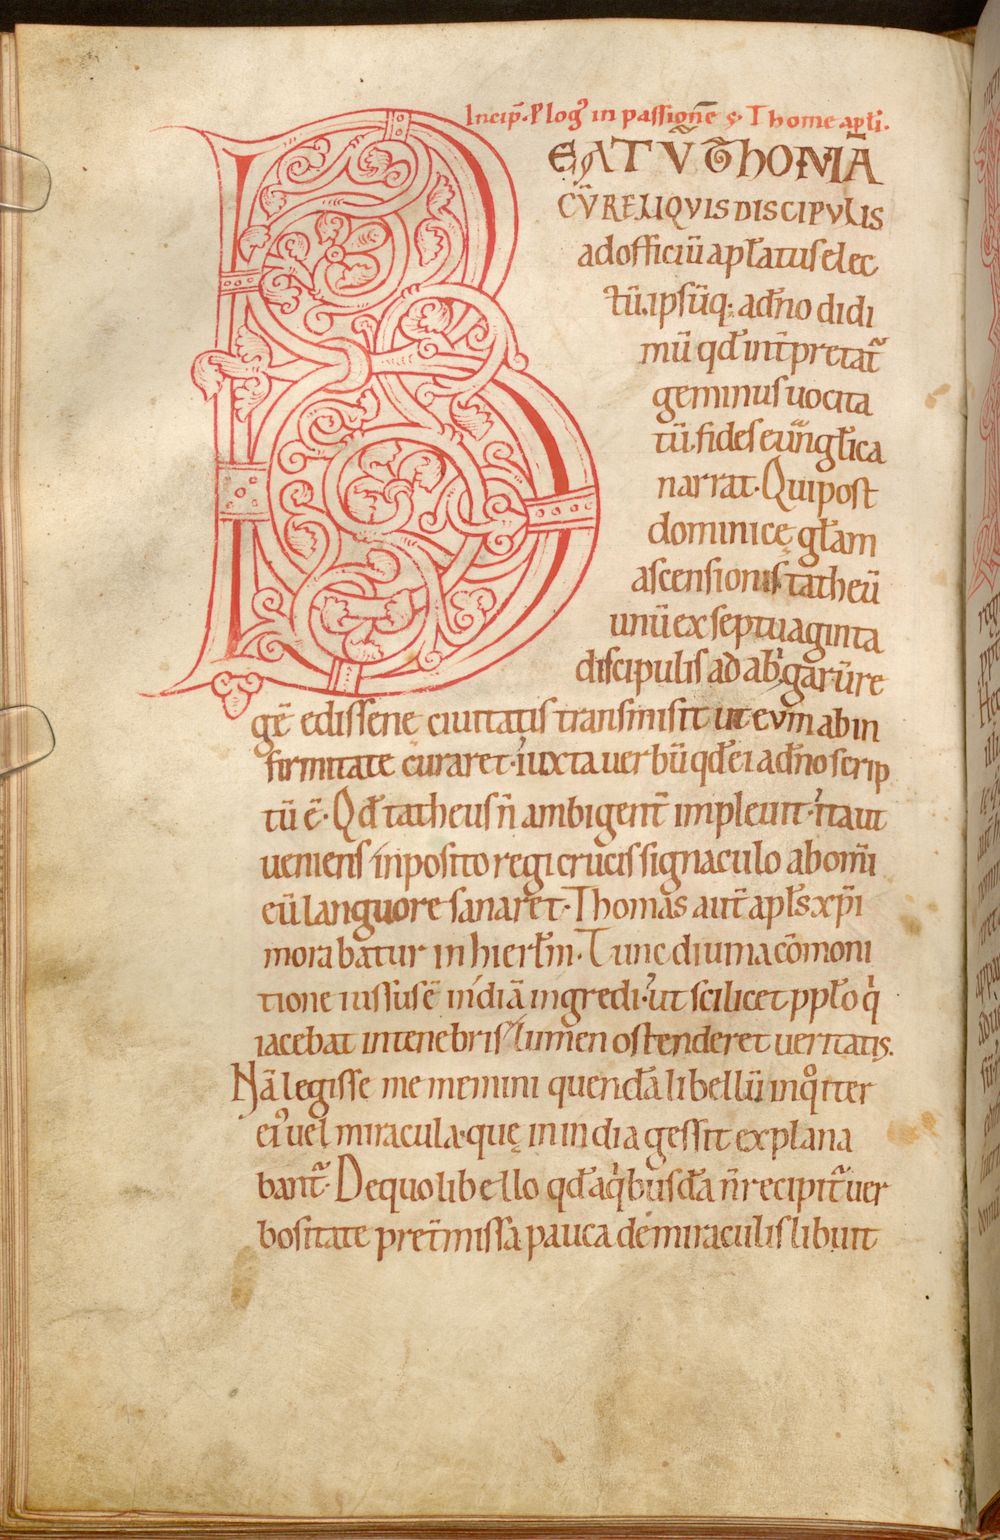 Incip̄. P̱logꝰ in passiōne s̄. Thome apłi.
BEATV̄ THOMĀ
CV̄ RELIQVIS DISCIPVLIS
ad officiū apłatus elec
tū. ipsūq; a dño didi
mū qđ int̄pretat᷑
geminus uocita
tū. fides euuanglica
narrat. Qui post
dominicę głam
ascensionis. tatheū
unū ex septuaginta
discipulis ad abgarū re
gē edissene ciuitatis transmisit ut eum ab in
firmitate curaret. iuxta uerbū qđ ei a dño scrip
tū ē. Qđ tatheus n̄ ambigent̄ impleuit. ita ut
ueniens inposito regi crucis signaculo ab om̄i
eū languore sanaret. Thomas aut̄ apłs xp̄i
morabatur in hierłm. Tunc diuina cōmoni
tione iussus ē indiā ingredi. ut scilicet ppło qͥ
iacebat in tenebris lumen ostenderet ueritatis.
Nā legisse me memini quendā libellū in qͦ iter
eiꝰ uel miracula. quę in india gessit explana
bant᷑. De quo libello qđ a qͥbusdā n̄ recipit᷑ uer
bositate pret̄missa pauca de miraculis libuit